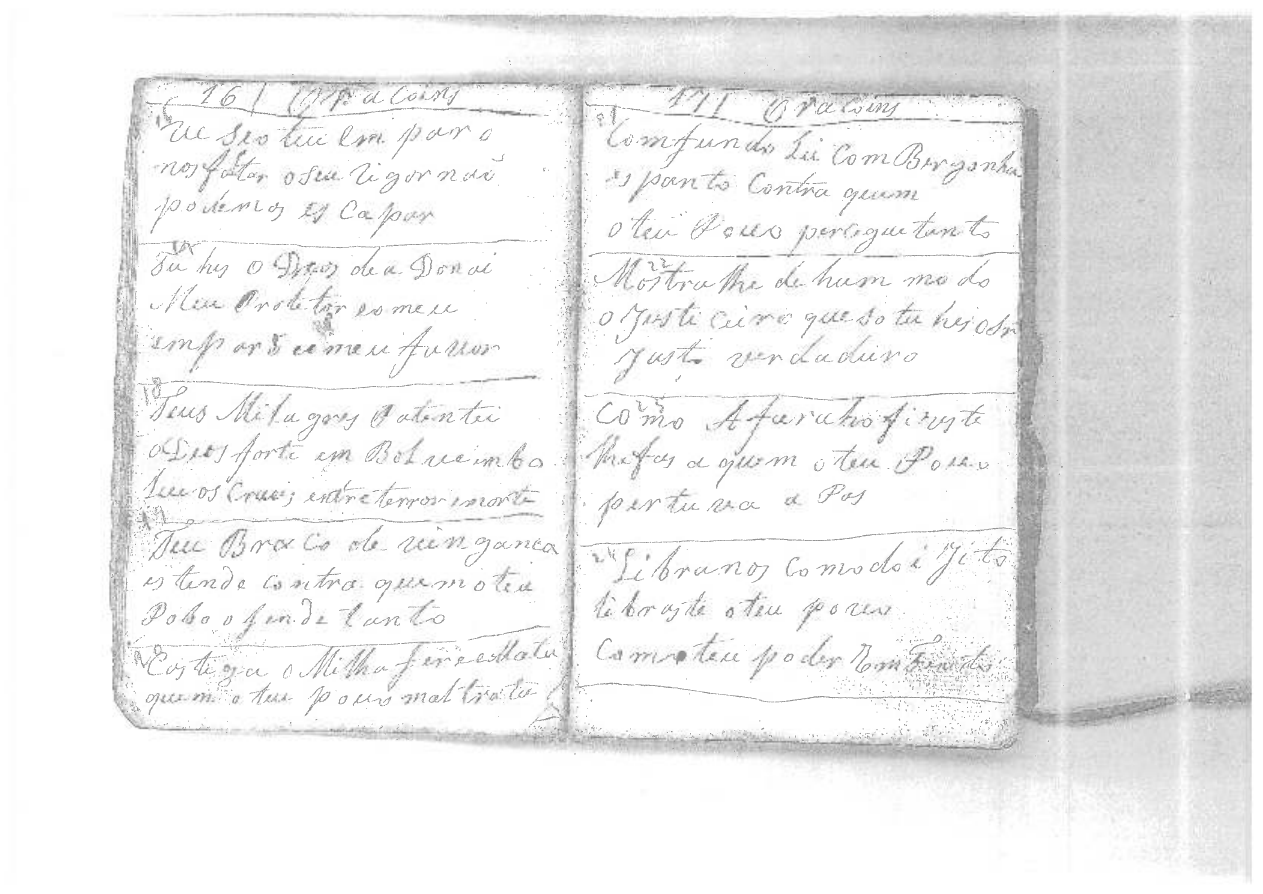 16 | Oracoins
16
Ue seo teu em paro
nos fatar o seu Vigor naõ
podemos es Capar
Tu hes o Deos de a Donai
Meu Protetor eo meu
emparo eo meu favor
18
Teus Milagres Patentei
o Deos forte em
seu os Crueis entre terror emorte
19
Teu Braco de vinganca
estende contra quem o teu
Pobo ofende tanto
20
Castega o Malha fere e Mata
quem o teu pouo maltrata
17 | Oracoins
21
Comfundo Lii Com Bergonha
es panto Contra quem
o teu Pouo percegue tanto
22
Mostra lhe de hum modo
o Justiceiro que so tu hes o Sr
Justo verdaduro
23
Como A faraho fizeste
lhe fas a quem o teu Pouo
perturva a Pas
24
Libranos como do i Jito
libraste o teu pouo
Com o teu poder